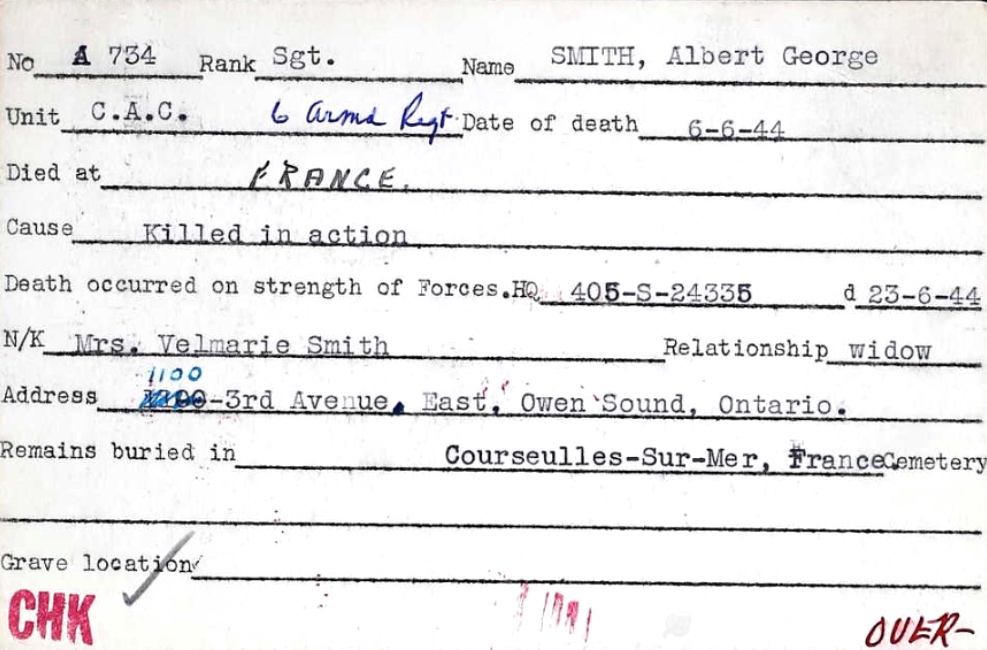 No A 734 Rank Sgt. Name SMITH, Albert George
Unit C.A.C. 6 Armd Regt Date of death 6-6-44
Died at FRANCE.
Cause Killed in action
Death occurred on strength of Forces. HQ 405-S-24335 d 23-6-44
N/K Mrs. Velmarie Smith Relationship widow
1100
Address -3rd Avenue, East, Owen Sound, Ontario.
Remains buried in Courseulles-Sur-Mer, France Cemetery
Grave location
CHK
OVER-